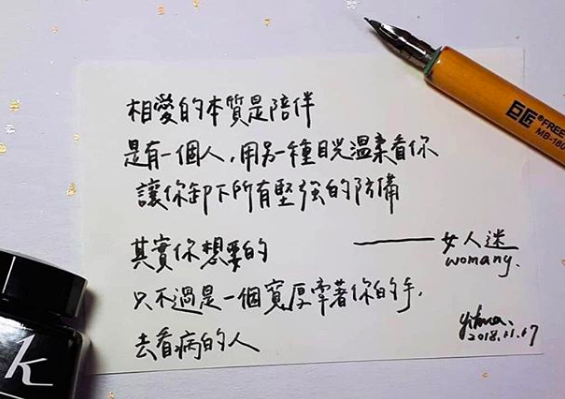 相愛的本質是陪伴
是有一個人,用另一種目光溫柔看你
讓你卸下所有堅強的防備
其實你想要的
只不過是一個寬厚牽著你的手,
去看病的人
——女人迷
womany.
2018.11.17
巨匠®FREE
k